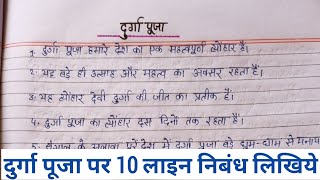 दुर्गा पूजा
1. दुर्गा पूजा हमारे देश का एक महत्वपूर्ण त्योहार है।
2. यह बड़े ही उत्साह और महत्व का अवसर रहता है।
3. यह त्योहार देवी दुर्गा की जीत का प्रतीक है।
4. दुर्गा पूजा का त्योहार दस दिनों तक रहता है।
5. बंगाल के अलावा पूरे देश में दुर्गा पूजा बड़े धूम-धाम से मनाया
दुर्गा पूजा पर 10 लाइन निबंध लिखिये